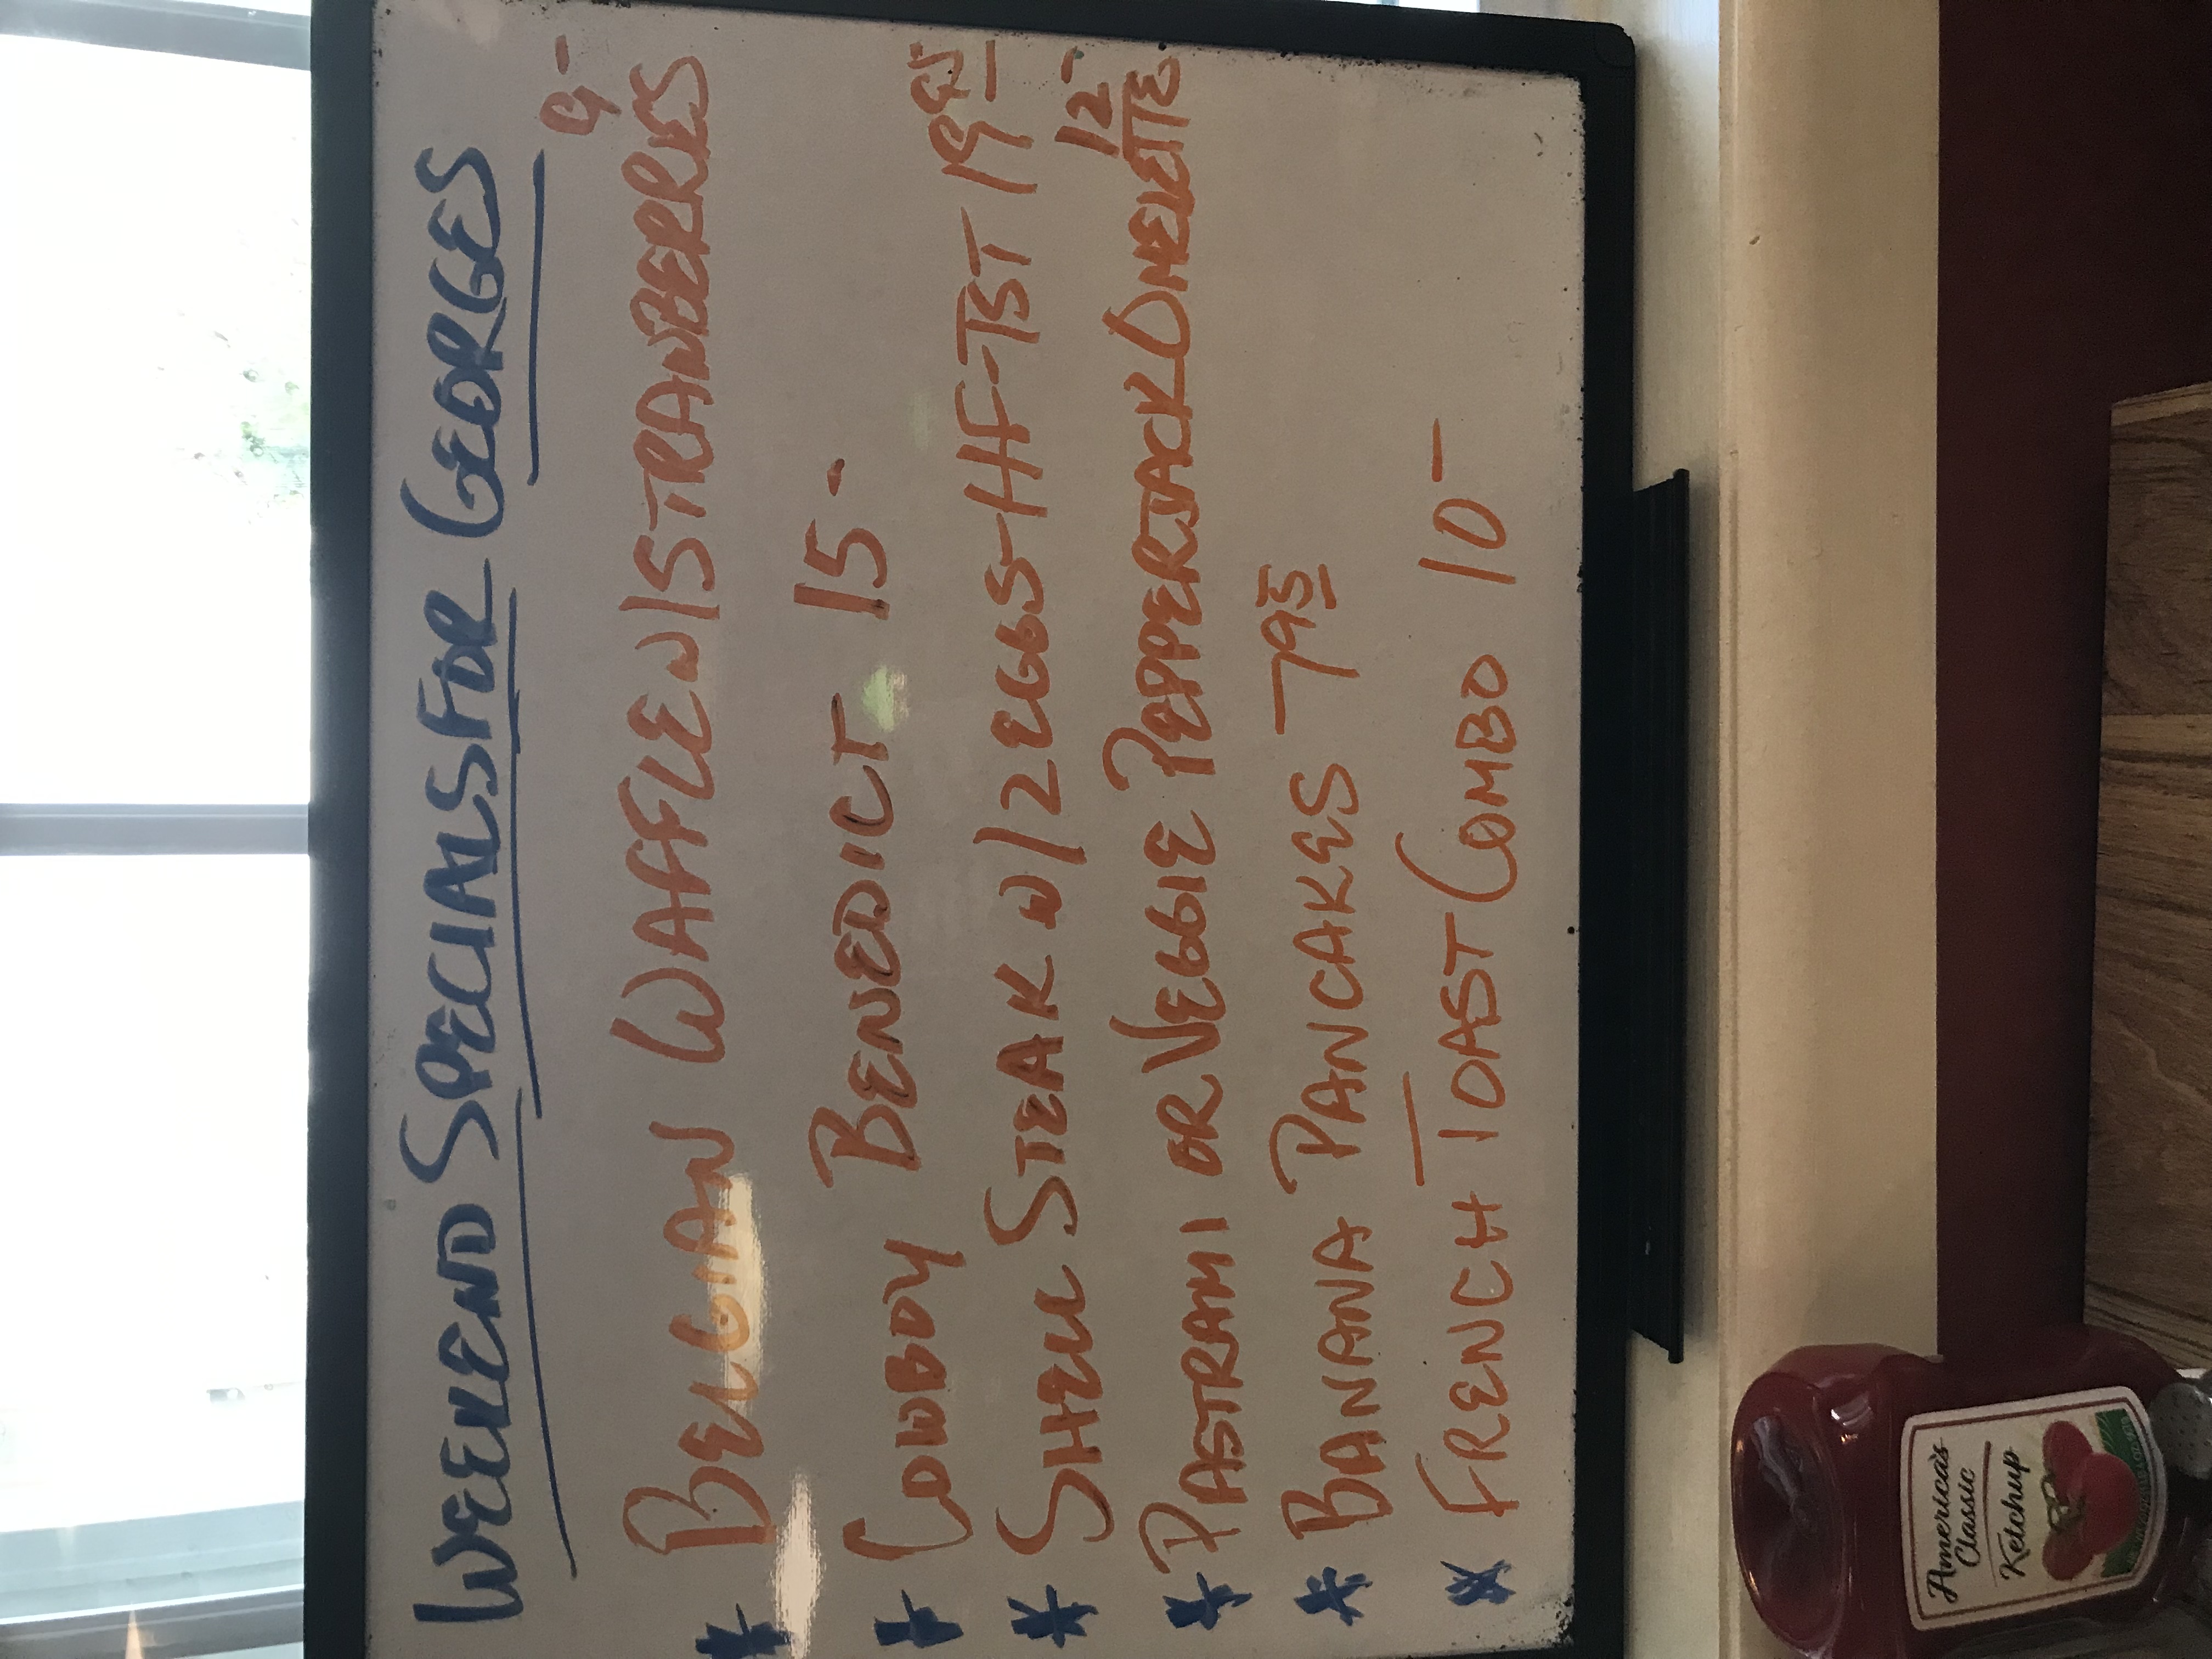 WEEKEND SPECIALS FOR GEORGES
* BELGIAN WAFFLE W/STRAWBERRIES 9-
* COWBOY BENEDICT 15-
* SHELL STEAK W/2 EGGS-HF-TST 19 95
* PASTRAMI OR VEGGIE PEPPERJACK OMELETTE 12-
* BANANA PANCAKES - 7 95
* FRENCH TOAST COMBO 10-
America's
Classic
Ketchup